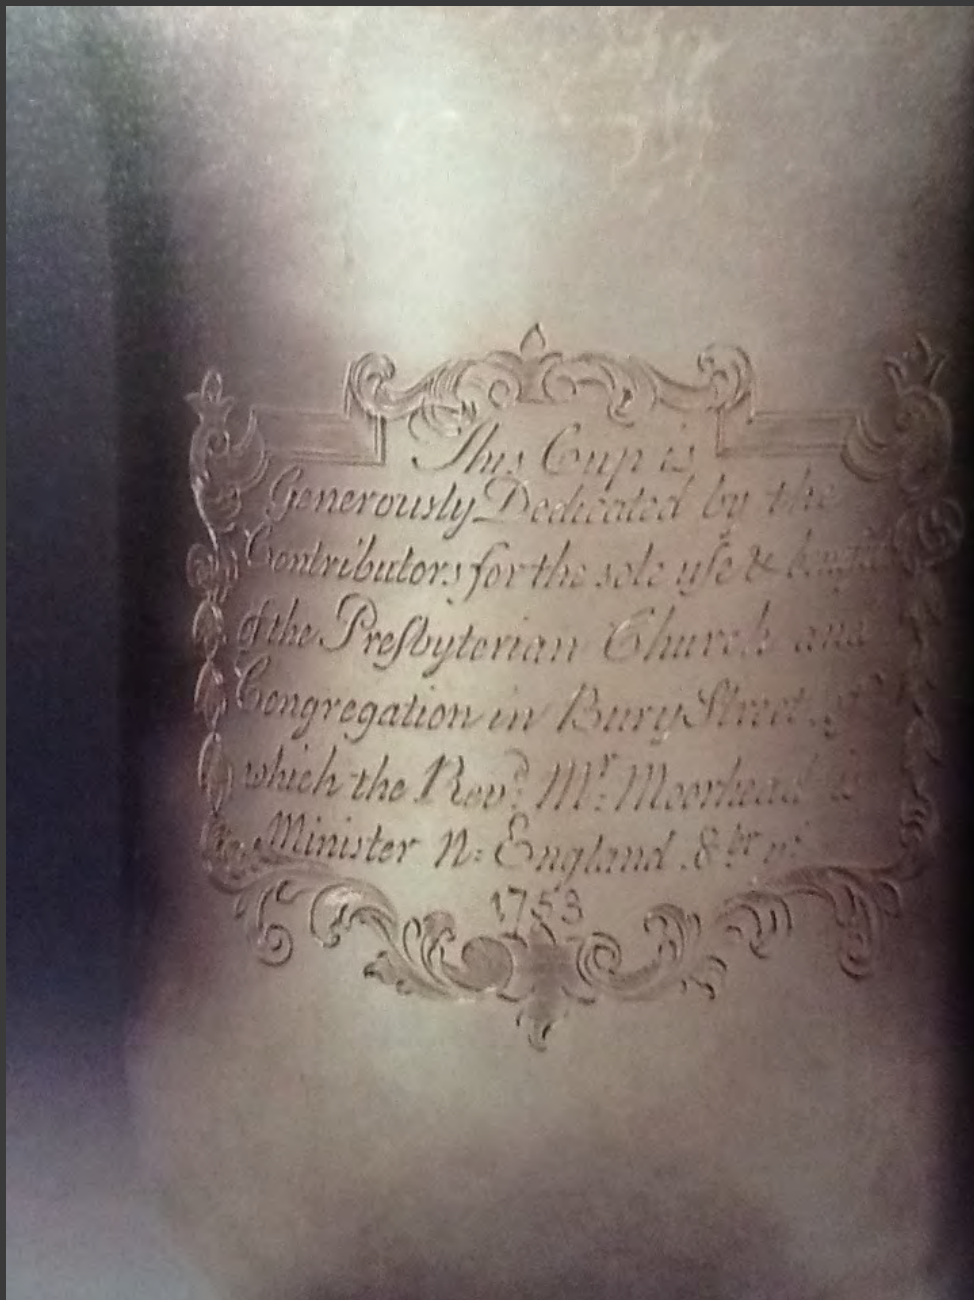 This Cup is
Generously Dedicated by the
Contributors for the sole uſe & benefit
of the Preſbyterian Church and
Congregation in Bury Street of
which the Revd. Mr: Moorhead is
Minister N: England 8br
1753